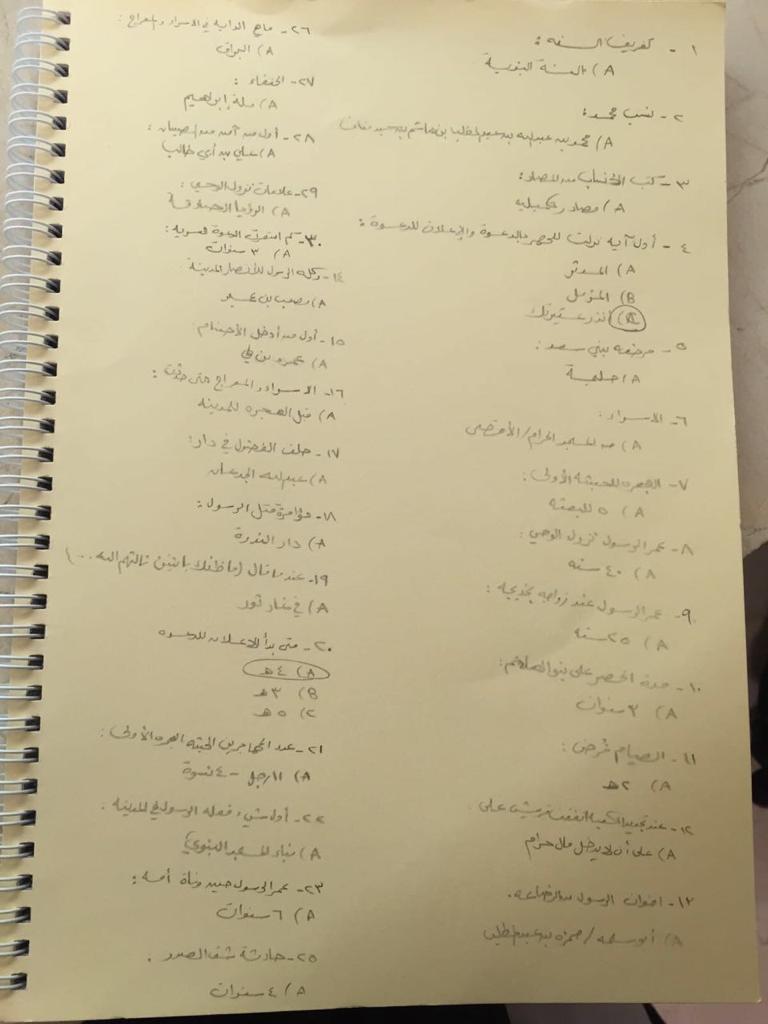 ١- تعريف السنه :
A) السنة النبوية
٢- نسب محمد :
A) محمد بن عبدالله بن عبدالمطلب بن هاشم بن عبد مناف
٣- كتب الأنساب من المصادر :
A) مصادر تكميليه
٤- أول آية نزلت للجهر بالدعوة والإعلان للدعوة :
A) المدثر
B) المزمل
C) أنذر عشيرتك
٥- مرضعه بني سعد :
A) حليمة
٦- الاسراء :
A) من المسجد الحرام/الأقصى
٧- الهجره للحبشة الأولى :
A) ٥ للبعثه
٨- عمر الرسول نزول الوحي :
A) ٤٠ سنه
٩- عمر الرسول عند زواجه بخديجه :
A) ٢٥ سنه
١٠- مدة الحصر على بنو هاشم :
A) ٣ سنوات
١١- الصيام فُرض :
A) ٢ هـ
١٢- عند تجديد الكعبة اتفقت قريش على
A) على أن لا يدخل مال حرام
١٣- اخوان الرسول من الرضاعه .
A) أبو سلمه / حمزه بن عبدالمطلب
٢٦- ماهي الدابة في الاسراء والمعراج :
A) البراق
٢٧- الحنفاء :
A) ملة إبراهيم
٢٨- أول من آمن من الصبيان :
A) علي بن أبي طالب
٢٩- علامات نزول الوحي :
A) الرؤيا الصادقة
٣٠- كم استمرت الدعوة السرية :
A) ٣ سنوات
١٤- وكله الرسول للأنصار المدينة :
A) مصعب بن عمير
١٥- أول من أدخل الأصنام
A) عمرو بن لحي
١٦- الاسراء والمعراج متى حدثت :
A) قبل الهجره للمدينه
١٧- حلف الفضول في دار :
A) عبدالله الجدعان
١٨- مؤامرة قتل الرسول :
A) دار الندوة
١٩- عندما قال (ما ظنك باثنين ثالثهم الله ...)
A) في غار ثور
٢٠- متى بدأ الاعلان للدعوه
A) ٤ هـ
B) ٣ هـ
C) ٥ هـ
٢١- عدد المهاجرين الحبشه الهجره الأولى :
A) ١١ رجل - ٤ نسوة
٢٢- أول شيء فعله الرسول في المدينة :
A) بناء المسجد النبوي
٢٣- عمر الرسول حين وفاة أمه :
A) ٦ سنوات
٢٥- حادثة شق الصدر .
A) ٤ سنوات